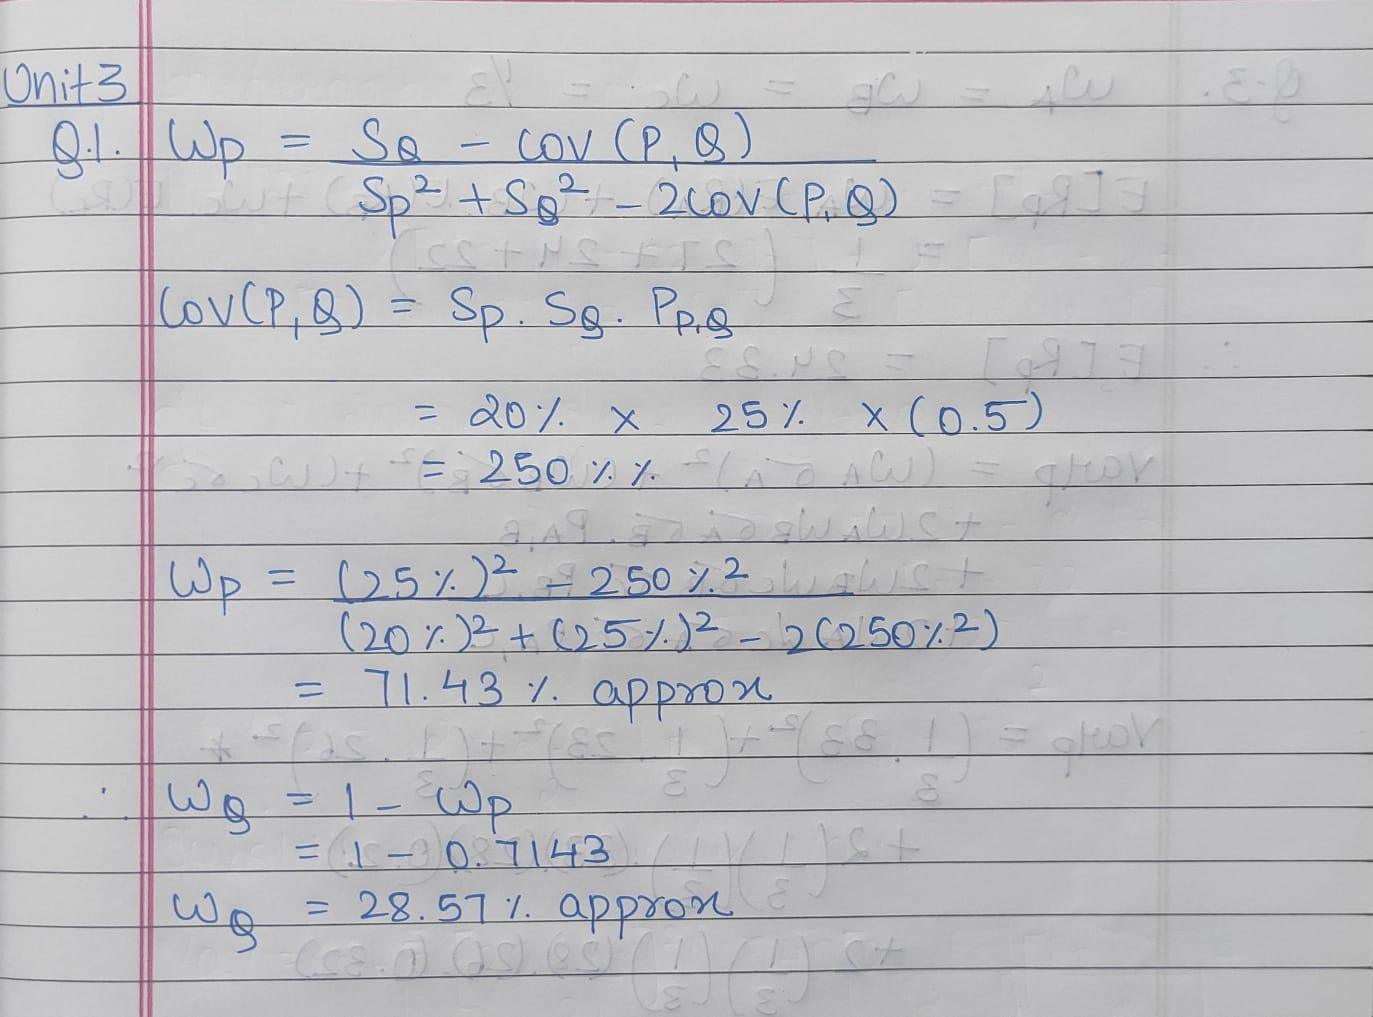 Unit 3
Q.1. Wp = SQ - COV (P, Q)
Sp² + SQ² - 2COV (P, Q)
COV(P, Q) = Sp. SQ. PP,Q
= 20% x 25% x (0.5)
= 250 % %
Wp = (25%)² - 250 %²
(20%)² + (25%)² - 2(250%²)
= 71.43 % approx
∴ WQ = 1 - Wp
= 1 - 0.7143
WQ = 28.57 % approx